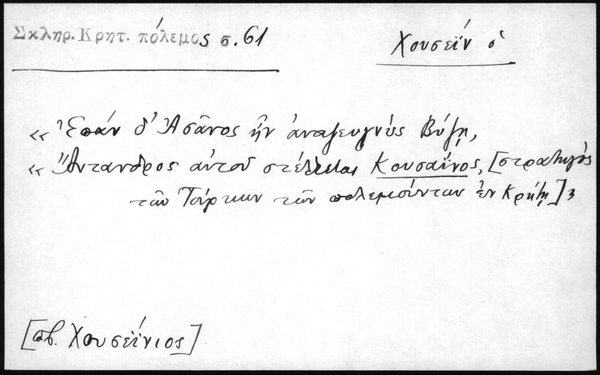 Σκληρ. Κρητ. πόλεμος σ. 61
Χουσεΐν ὁ
« Ἐπάν δ' Ἀσᾶνος ἦν ἀναζευγνύς Βύζῃ,
« Ἄντανδρος αὐτοῦ στέλλεται Κουσαΐνος, [στρατηγός
τῶν Τούρκων τῶν πολεμούντων ἐν Κρήτῃ] »
[πβ. Χουσεΐνιος]